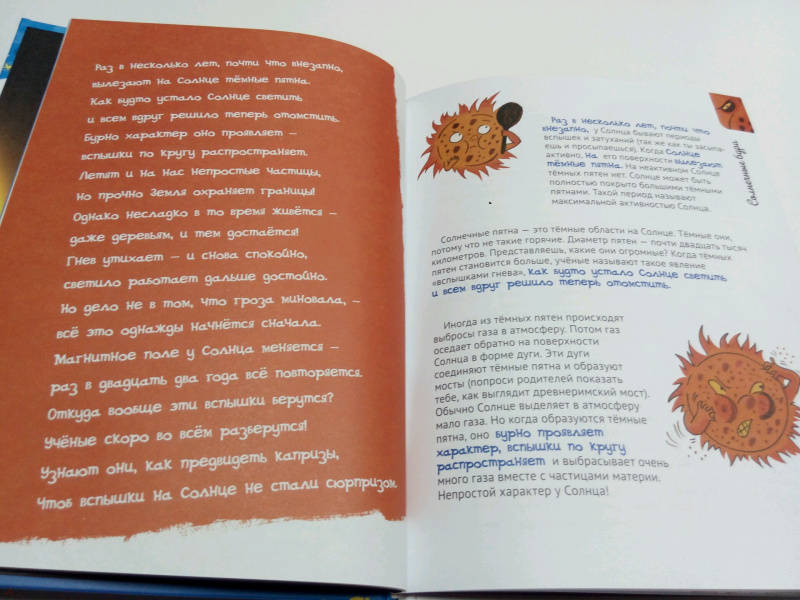 Раз в несколько лет, почти что внезапно,
вылезают на Солнце тёмные пятна.
Как будто устало Солнце светить
и всем вдруг решило теперь отомстить.
Бурно характер оно проявляет –
вспышки по кругу распространяет.
Летят и на нас непростые частицы,
Но прочно Земля охраняет границы!
Однако несладко в то время живётся –
даже деревьям, и тем достаётся!
Гнев утихает – и снова спокойно,
светило работает дальше достойно.
Но дело не в том, что гроза миновала, –
всё это однажды начнётся сначала.
Магнитное поле у Солнца меняется –
раз в двадцать два года всё повторяется.
Откуда вообще эти вспышки берутся?
Учёные скоро во всём разберутся!
Узнают они, как предвидеть капризы,
Чтоб вспышки на Солнце не стали сюрпризом.
Раз в несколько лет, почти что
внезапно, у Солнца бывают периоды
вспышек и затуханий (так же как ты засыпа-
ешь и просыпаешься). Когда Солнце
активно, на его поверхности вылезают
тёмные пятна. На неактивном Солнце
тёмных пятен нет. Солнце может быть
полностью покрыто большими тёмными
пятнами. Такой период называют
максимальной активностью Солнца.
Солнечные бури
Солнечные пятна – это тёмные области на Солнце. Тёмные они,
потому что не такие горячие. Диаметр пятен – почти двадцать тысяч
километров. Представляешь, какие они огромные? Когда тёмных
пятен становится больше, учёные называют такое явление
«вспышками гнева», как будто устало Солнце светить
и всем вдруг решило теперь отомстить.
Иногда из тёмных пятен происходят
выбросы газа в атмосферу. Потом газ
оседает обратно на поверхности
Солнца в форме дуги. Эти дуги
соединяют тёмные пятна и образуют
мосты (попроси родителей показать
тебе, как выглядит древнеримский мост).
Обычно Солнце выделяет в атмосферу
мало газа. Но когда образуются тёмные
пятна, оно бурно проявляет
характер, вспышки по кругу
распространяет и выбрасывает очень
много газа вместе с частицами материи.
Непростой характер у Солнца!